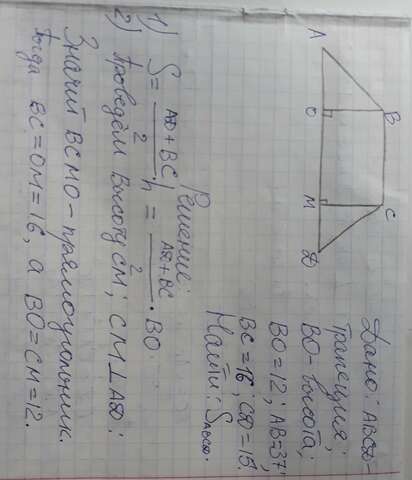 A
B
O
M
C
D
Дано: ABCD-
трапеция;
BO-высота;
BO=12; AB=37;
BC=16; CD=15.
Найти: S ABCD.
Решение:
1) S = AD+BC / 2 · h = AD+BC / 2 · BO.
2) Проведём высоту CM; CM⊥AD:
Значит BCMO-прямоугольник.
Тогда BC=OM=16, а BO=CM=12.